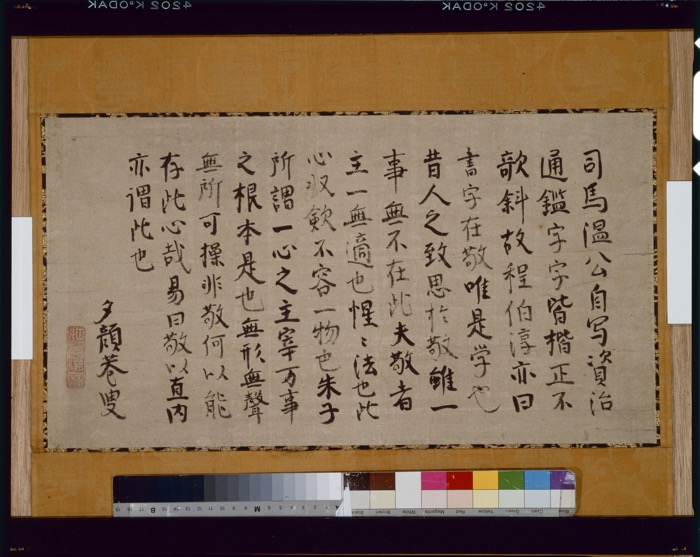 4202 KODAK
4202 KODAK
司馬温公自写資治
通鑑字字皆楷正不
欹斜故程伯淳亦曰
書字在敬唯是学也
昔人之致思於敬雖一
事無不在此夫敬者
主一無適也惺〻法也此
心収斂不容一物也朱子
所謂一心之主宰万事
之根本是也無形無聲
無所可操非敬何以能
存此心哉易曰敬以直内
亦謂此也
夕顔巷叟